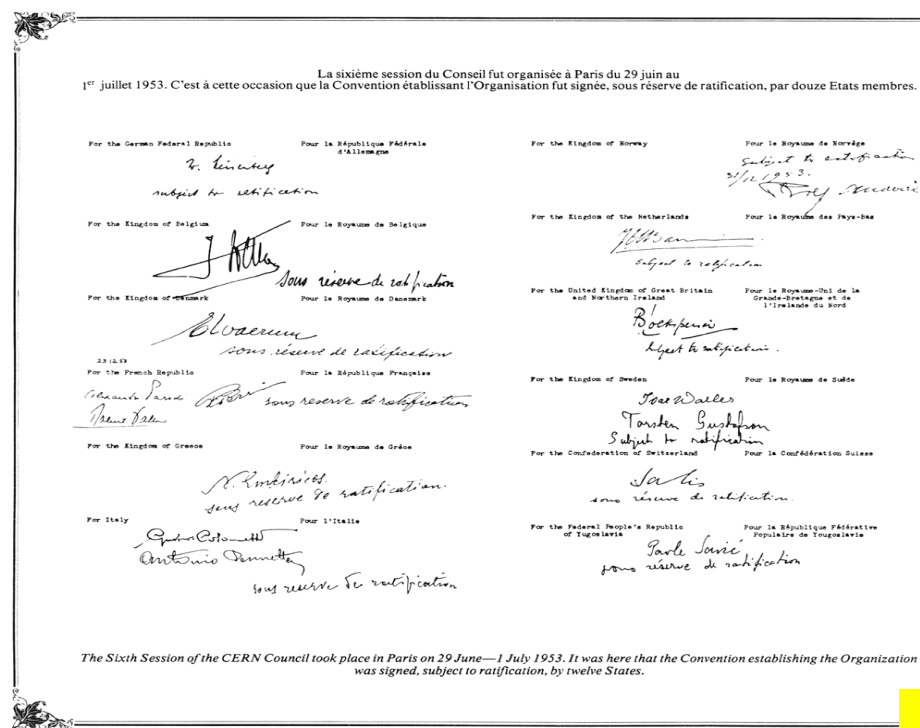 La sixième session du Conseil fut organisée à Paris du 29 juin au
1er juillet 1953. C'est à cette occasion que la Convention établissant l'Organisation fut signée, sous réserve de ratification, par douze Etats membres.
For the German Federal Republic
Pour la République Fédérale
d'Allemagne
subject to ratification
For the Kingdom of Belgium
Pour le Royaume de Belgique
sous réserve de ratification
For the Kingdom of Denmark
Pour le Royaume de Danemark
sous réserve de ratification
23.12.53
For the French Republic
Pour la République Française
Alexandre Parodi
sous reserve de ratification
For the Kingdom of Greece
Pour le Royaume de Grèce
sous reserve de ratification.
For Italy
Pour l'Italie
Antonio Pennetta
sous reserve de ratification
For the Kingdom of Norway
Pour le Royaume de Norvège
Subject to ratification
31/12 1953.
For the Kingdom of the Netherlands
Pour le Royaume des Pays-Bas
Subject to ratification
For the United Kingdom of Great Britain
and Northern Ireland
Pour le Royaume-Uni de la
Grande-Bretagne et de
l'Irelande du Nord
subject to ratification.
For the Kingdom of Sweden
Pour le Royaume de Suède
Ivar Waller
Torsten Gustafson
Subject to ratification
For the Confederation of Switzerland
Pour la Confédération Suisse
sous réserve de ratification.
For the Federal People's Republic
of Yugoslavia
Pour la République Fédérative
Populaire de Yougoslavie
Pavle Savić
sous réserve de ratification
The Sixth Session of the CERN Council took place in Paris on 29 June—1 July 1953. It was here that the Convention establishing the Organization
was signed, subject to ratification, by twelve States.